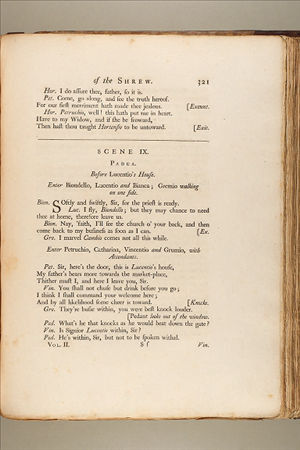 of the SHREW. 321
Hor. I do assure thee, father, so it is.
Pet. Come, go along, and see the truth hereof.
For our first merriment hath made thee jealous. [Exeunt.
Hor. Petruchio, well! this hath put me in heart.
Have to my Widow, and if she be froward,
Then hast thou taught Hortensio to be untoward. [Exit.
SCENE IX.
PADUA.
Before Lucentio's House.
Enter Biondello, Lucentio and Bianca; Gremio walking
on one side.
Bion. SOftly and swiftly, Sir, for the priest is ready.
Luc. I fly, Biondello; but they may chance to need
thee at home, therefore leave us.
Bion. Nay, 'faith, I'll see the church o' your back, and then
come back to my business as soon as I can. [Ex.
Gre. I marvel Cambio comes not all this while.
Enter Petruchio, Catharina, Vincentio and Grumio, with
Attendants.
Pet. Sir, here's the door, this is Lucentio's house,
My father's bears more towards the market-place,
Thither must I, and here I leave you, Sir.
Vin. You shall not chuse but drink before you go;
I think I shall command your welcome here;
And by all likelihood some cheer is toward. [Knocks.
Gre. They're busie within, you were best knock louder.
[Pedant looks out of the window.
Ped. What's he that knocks as he would beat down the gate?
Vin. Is Signior Lucentio within, Sir?
Ped. He's within, Sir, but not to be spoken withal.
VOL. II. S f Vin.